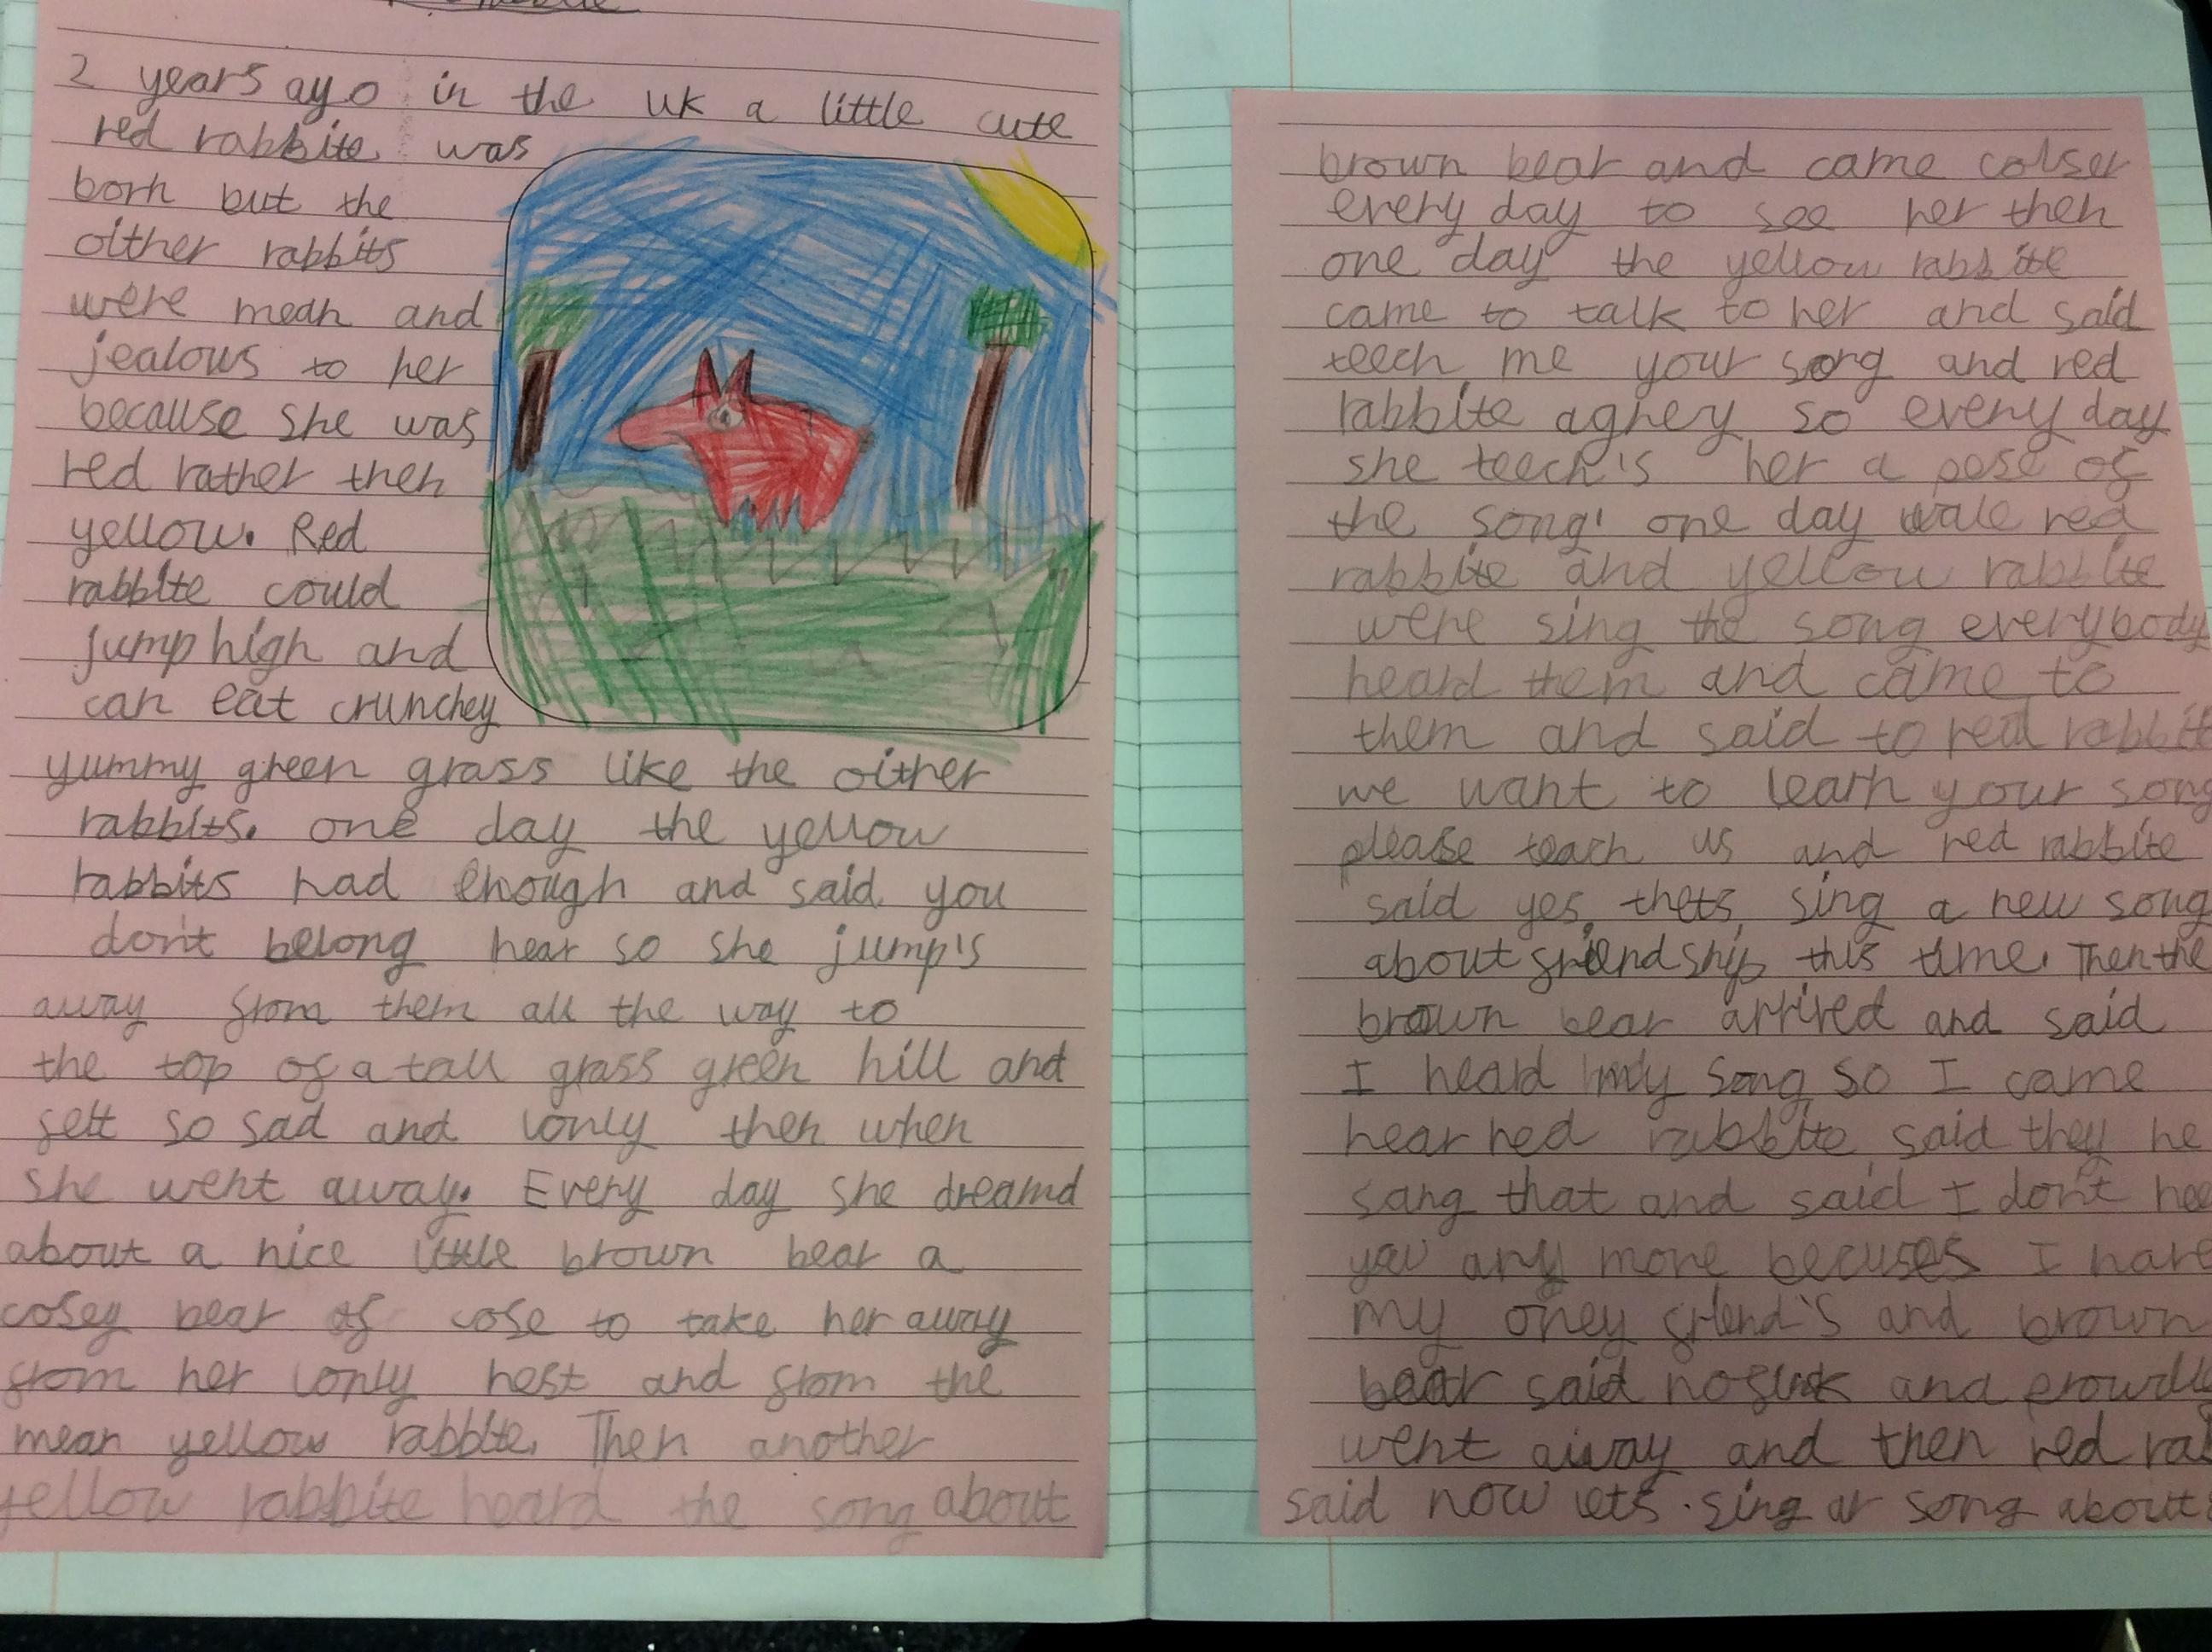 2 years ago in the uk a little cute
red rabbite was
born but the
oither rabbits
were mean and
jealows to her
because she was
red rather then
yellow. Red
rabbite could
jump high and
can eat crunchey
yummy green grass like the oither
rabbits. one day the yellow
rabbits had enough and said you
don't belong hear so she jump's
away from them all the way to
the top of a tall grass green hill and
felt so sad and lonly then when
she went away. Every day she dreamd
about a nice little brown bear a
cosey bear of cose to take her away
from her lonly nest and from the
mean yellow rabbite. Then another
yellow rabbite heard the song about
brown bear and came colser
every day to see her then
one day the yellow rabbite
came to talk to her and said
teech me your song and red
rabbite agrey so every day
she teech's her a pese of
the song' one day wale red
rabbite and yellow rabbite
were sing the song everybody
heard them and came to
them and said to red rabbit
we want to learn your song
please teach us and red rabbite
said yes thets sing a new song
about friendship this time. Then the
brown bear arrived and said
I heard my song so I came
hear red rabbite said they he
sang that and said I don't nee
you any more becuses I have
my oney friend's and brown
bear said no and
went away and then red rab
said now lets sing a song about